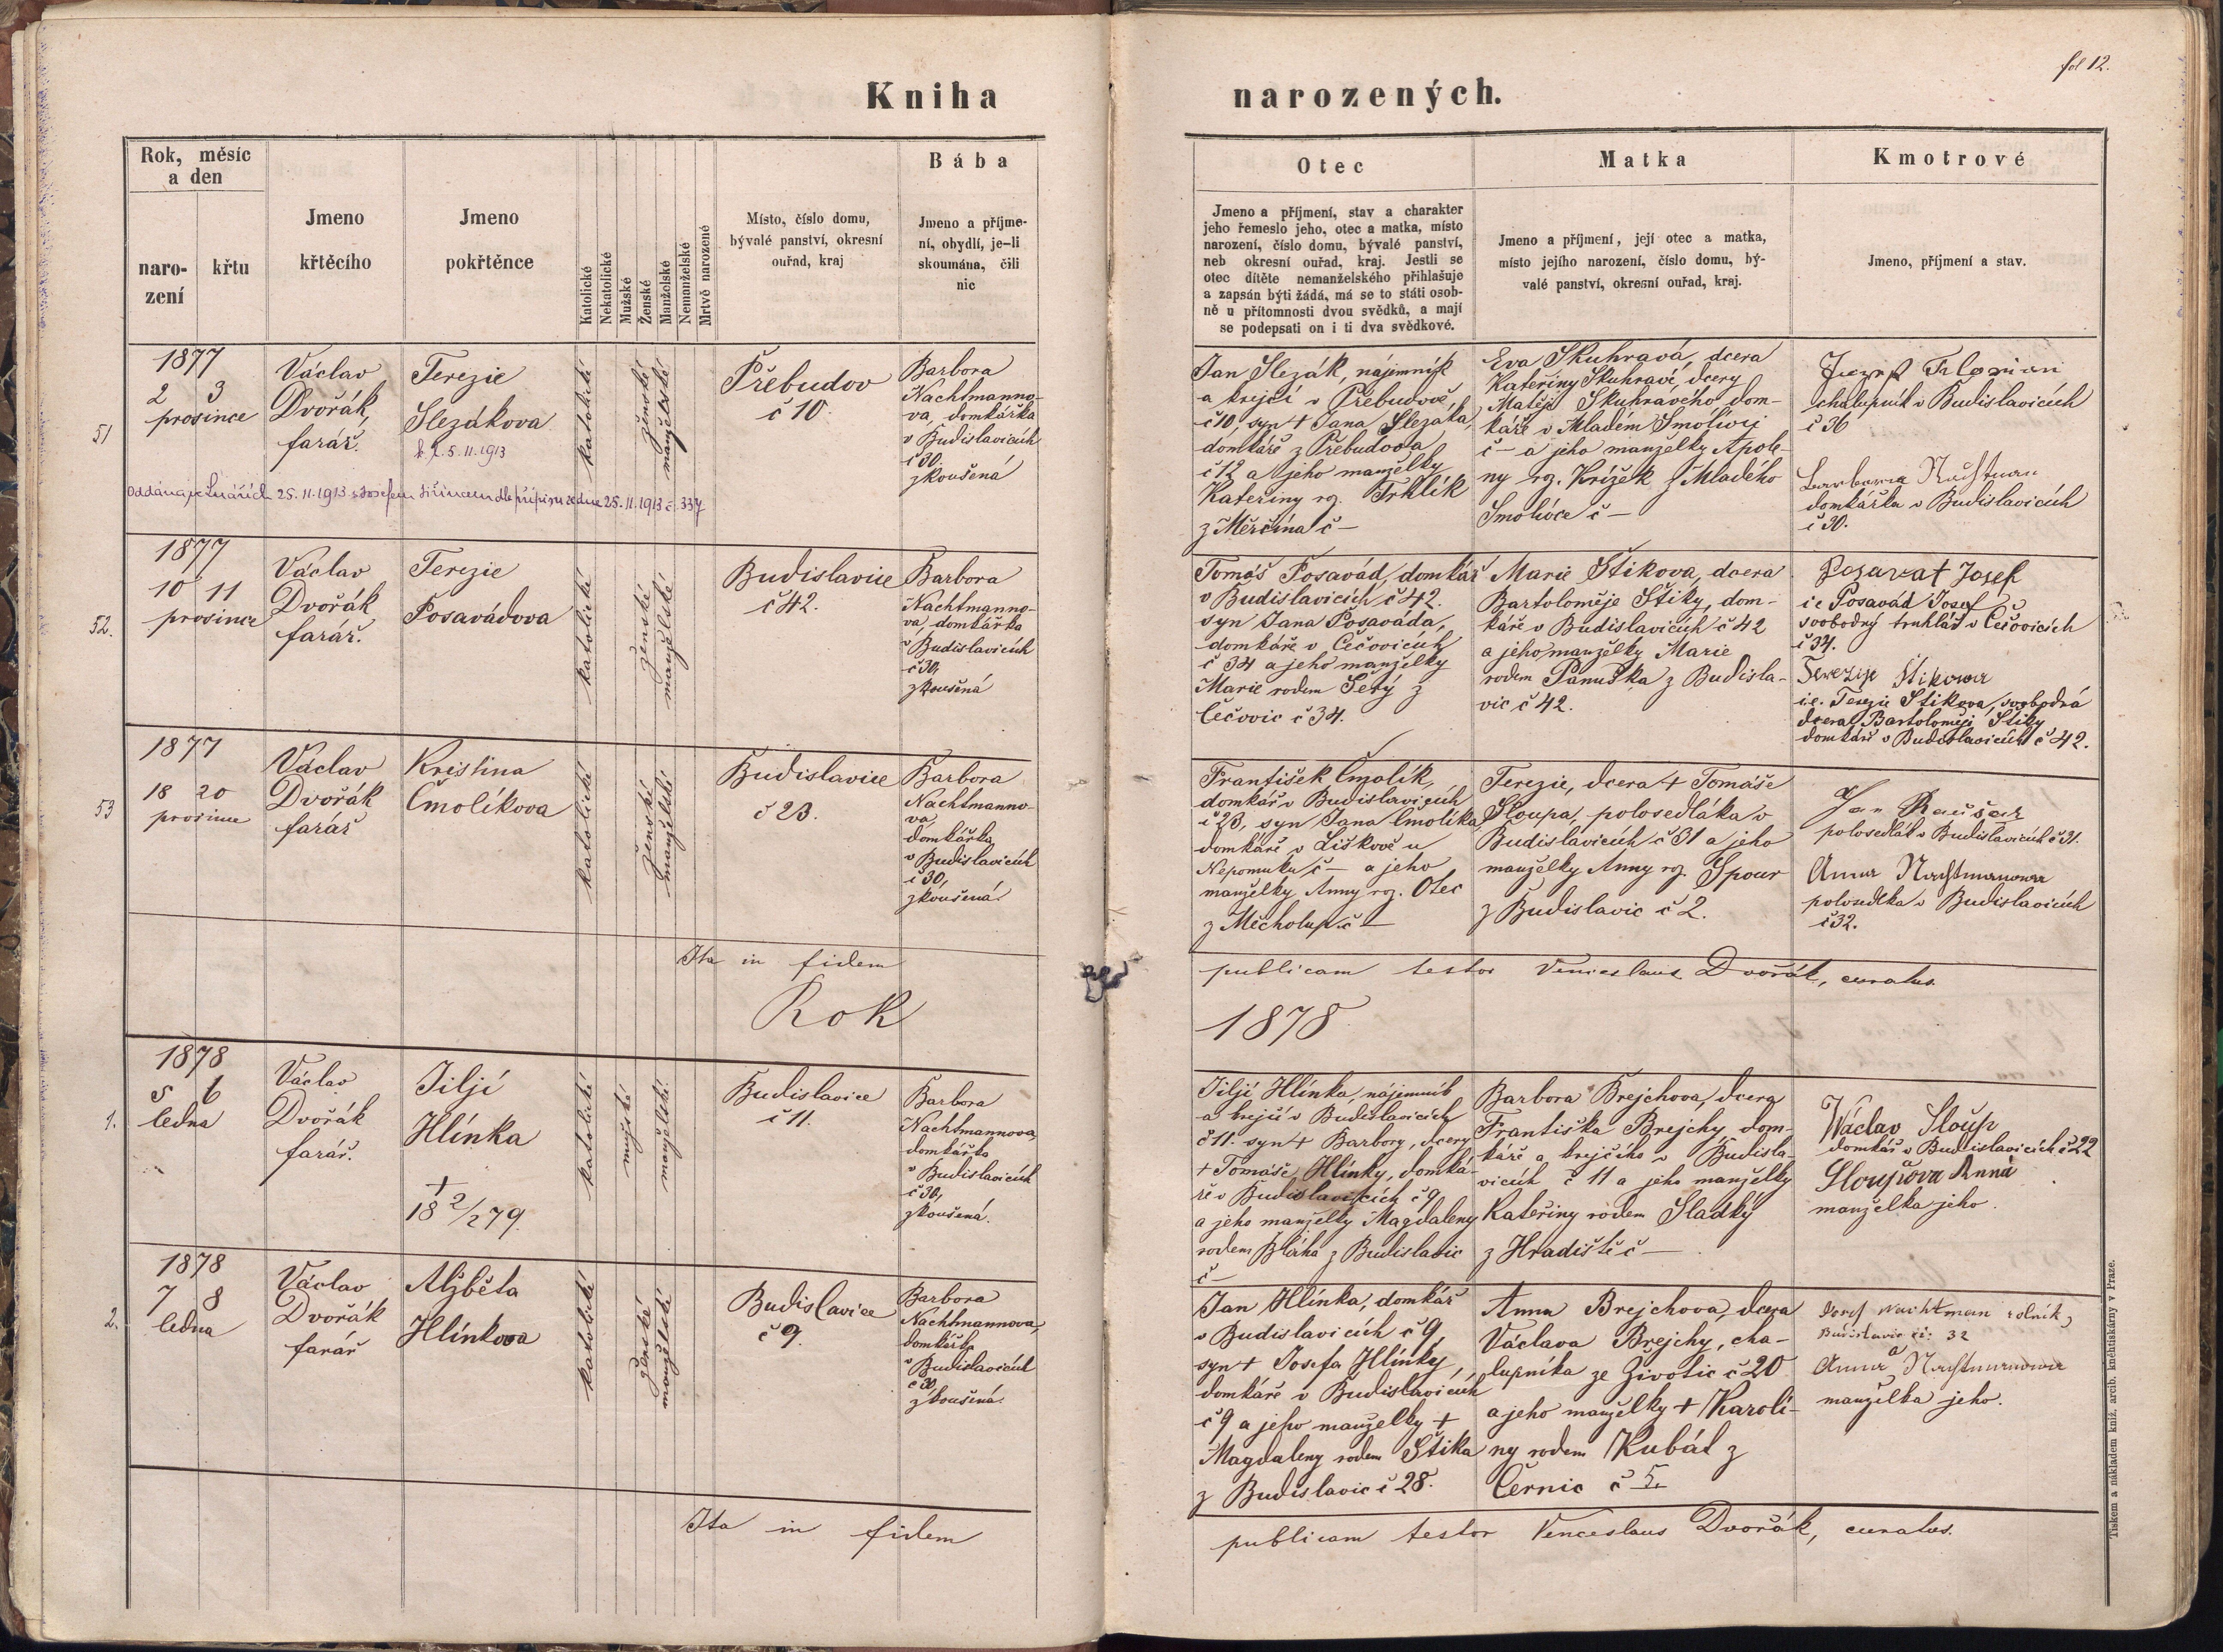 fol 12.
Kniha
narozených.
Rok, měsíc
a den
naro-
zení
křtu
Jmeno
křtěcího
Jmeno
pokřtěnce
Katolické
Nekatolické
Mužské
Ženské
Manželské
Nemanželské
Mrtvě narozené
Místo, číslo domu,
bývalé panství, okresní
ouřad, kraj
Bába
Jmeno a příjme-
ní, obydlí, je-li
skoumána, čili
nic
Otec
Jmeno a příjmení, stav a charakter
jeho řemeslo jeho, otec a matka, místo
narození, číslo domu, bývalé panství,
neb okresní ouřad, kraj. Jestli se
otec dítěte nemanželského přihlašuje
a zapsán býti žádá, má se to státi osob-
ně u přítomnosti dvou svědků, a mají
se podepsati on i ti dva svědkové.
Matka
Jmeno a příjmení, její otec a matka,
místo jejího narození, číslo domu, bý-
valé panství, okresní ouřad, kraj.
Kmotrové
Jmeno, příjmení a stav.
51
1877
2 3
prosince
Václav
Dvořák,
farář.
Terezie
Slezákova
5.11.1913
katolické
ženské
manželské
Přebudov
č 10.
Barbora
Nachtmanno-
va, domkářka
v Budislavicích
č 30.
zkoušená
Oddána ve Lnářích 25.11.1913 s Josefem Jiřincem dle přípisu ze dne 25.11.1913 č. 337
Jan Slezák, nájemník
a krejčí v Přebudově
č 10, syn + Jana Slezáka,
domkáře z Přebudova
č 12 a jeho manželky
Kateřiny roz. Trhlík
z Měrčína č —
Eva Skuhravá, dcera
Kateřiny Skuhravé, dcery
Matěje Skuhravého dom-
káře v Mladém Smolivci
č — a jeho manželky Apole-
ny roz. Křížek z Mladého
Smolivce č —
chalupník v Budislavicích
č 36
Barbara Nachtman
domkářka v Budislavicích
č 30.
52.
1877
10 11
prosince
Václav
Dvořák
farář.
Terezie
Posavádova
katolické
ženské
manželské
Budislavice
č 42.
Barbora
Nachtmanno-
va domkářka
v Budislavicích
č 30,
zkoušená
Tomáš Posavád, domkář
v Budislavicích č 42.
syn Jana Posaváda,
domkáře v Čečovicích
č 34 a jeho manželky
Marie rodem Šetý z
Čečovic č 34.
Marie Štikova, dcera
Bartoloměje Štiky, dom-
káře v Budislavicích č 42
a jeho manželky Marie
rodem Panuška z Budisla-
vic č 42.
Posavat Josef
i.e. Posavád Josef
svobodný truhlář v Čečovicích
č 34.
Terezije Štikowa
i.e. Terezie Štikova, svobodná
dcera Bartoloměje Štiky
domkáře v Budislavicích č 42.
53
1877
18 20
prosince
Václav
Dvořák
farář
Kristina
Čmolíkova
katolické
ženské
manželské
Budislavice
č 23.
Barbora
Nachtmanno-
va,
domkářka
v Budislavicích
č 30,
zkoušená.
František Čmolík,
domkář v Budislavicích
č 23, syn Jana Čmolíka,
domkáře v Liškově u
Nepomuku č — a jeho
manželky Anny roz. Otec
z Měcholup č —
Terezie, dcera + Tomáše
Sloupa, polosedláka v
Budislavicích č 31 a jeho
manželky Anny roz. Spour
z Budislavic č 2.
Jan Raušar
polosedlák v Budislavicích č 31.
Anna Nachtmanowa
polosedlka v Budislavicích
č 32.
Ita in fidem
publicam testor Venceslaus Dvořák, curatus.
Rok
1878
1.
1878
5 6
ledna
Václav
Dvořák
farář.
Jiljí
Hlínka
+
18 2/2 79.
katolické
mužské
manželské
Budislavice
č 11.
Barbora
Nachtmannova,
domkářka
v Budislavicích
č 30,
zkoušená.
Jiljí Hlínka, nájemník
a krejčí v Budislavicích
č 11. syn + Barbory, dcery
+ Tomáše Hlínky, domká-
ře v Budislavicích č 9
a jeho manželky Magdaleny
rodem Bláha z Budislavic
č —
Barbora Brejchova, dcera
Františka Brejchy dom-
káře a krejčího v Budisla-
vicích č 11 a jeho manželky
Kateřiny rodem Sladký
z Hradiště č —
Wáclav Sloup
domkář v Budislavicích č 22
Sloupova Anna
manželka jeho.
2.
1878
7 8
ledna
Václav
Dvořák
farář
Alžběta
Hlínkova
katolické
ženské
manželské
Budislavice
č 9.
Barbora
Nachtmannova,
domkářka
v Budislavicích
č 30,
zkoušená.
Jan Hlínka, domkář
v Budislavicích č 9,
syn + Josefa Hlínky,
domkáře v Budislavicích
č 9 a jeho manželky +
Magdaleny rodem Štika
z Budislavic č 28.
Anna Brejchova, dcera
Václava Brejchy, cha-
lupníka ze Životic č 20
a jeho manželky + Karolí-
ny rodem Kubát z
Černic č 5.
Josef Nachtman rolník,
Budislavic či: 32
a
Anna Nachtmanowa
manželka jeho.
Ita in fidem
publicam testor Venceslaus Dvořák, curatus.
Tiskem a nákladem kníž. arcib. knihtiskárny v Praze.